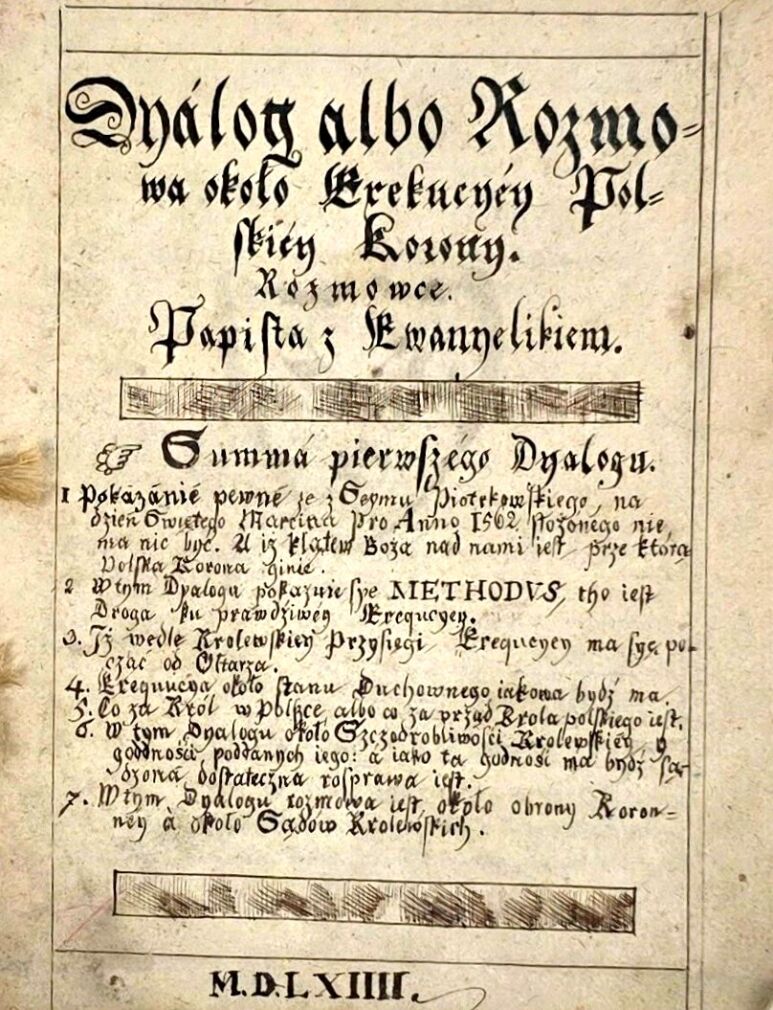 Dyálog albo Rozmo-
wa około Exekucyéy Pol-
skiéy Korony.
Rozmowce.
Papista z Ewanyelikiem.
☞ Summá pierwszégo Dyalogu.
1 Pokazánié pewné że z Seymu Piotrkowskiego, na
dzień Swiętego Marcina Pro Anno 1562 złożonégo nie
ma nic być. A iż klątew Boża nad nami iest, prze którą
Polska Korona ginie.
2 Wtym Dyalogu pokazuie sye METHODVS, tho iest
Droga ku prawdziwéy Exequcyey.
3. Iż wedle Krolewskiéy Przysięgi Exequcyey ma syę po-
cząć od Ołtarza.
4. Exequucya około stanu Duchownego iakowa bydź ma.
5. Co za Król w Polszce albo co za urząd Krola polskiego iest.
6. W tym Dyalogu około Szczodrobliwości Krolewskiéy y
godności poddanych iego: a iako ta godność ma bydź są-
dzoná dostateczna rosprawa iest.
7. Wtym Dyalogu rozmowa iest około obrony Koron-
néy a około Sądów Krolewskich.
M.D.LXIIII.